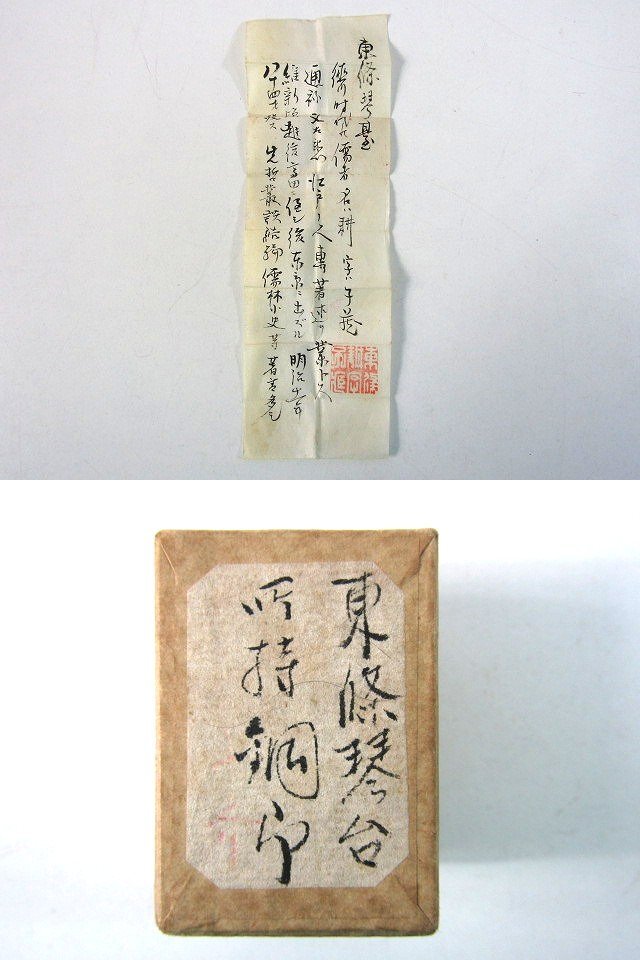 東條琴臺
時代ノ儒者 名ハ耕 字ハ子藏
通称文左衛門 江戸ノ人 専著述ヲ業トス
維新后越後高田ニ住シ後東京ニ出ズル 明治十一年
八十四才歿ス 先哲叢談続編 儒林小史等著書多シ
東條琴台
所持銅印